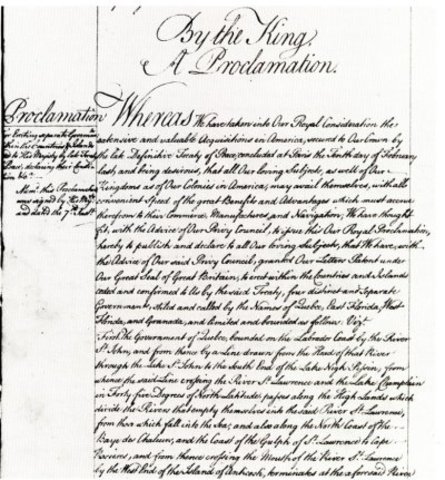 By the King.
A Proclamation.
Proclamation
for Erecting separate Governments
in the Countries & Islands
ceded to His Majesty by late Treaty
Whereas We have taken into Our Royal Consideration the
extensive and valuable Acquisitions in America, secured to Our Crown by
the late Definitive Treaty of Peace, concluded at Paris the Tenth day of February
last, and being desirous, that all Our loving Subjects, as well of Our
Kingdoms as of Our Colonies in America, may avail themselves, with all
convenient Speed, of the great Benefits and Advantages which must accrue
therefrom to their Commerce, Manufactures, and Navigation; We have thought
fit, with the Advice of Our Privy Council, to issue this Our Royal Proclamation,
hereby to publish and declare to all Our loving Subjects, that We have, with
the Advice of Our said Privy Council, granted Our Letters Patent under
Our Great Seal of Great Britain, to erect within the Countries and Islands
ceded and confirmed to Us by the said Treaty, four distinct and separate
Governments, stiled and called by the Names of Quebec, East Florida, West
Florida, and Granada, and limited and bounded as follow; Vizt.
First. The Government of Quebec, bounded on the Labrador Coast by the River
St. John, and from thence by a Line drawn from the Head of that River
through the Lake St. John to the South End of the Lake Nigh Pissin, from
whence the said Line crossing the River St. Lawrence and the Lake Champlain
in Forty five Degrees of North Latitude, passes along the High Lands which
divide the Rivers that empty themselves into the said River St. Lawrence,
from those which fall into the Sea; and also along the North Coast of the
Baye des Chaleurs, and the Coast of the Gulph of St. Lawrence to Cape
Rosieres, and from thence crossing the Mouth of the River St. Lawrence
by the West End of the Island of Anticosti, terminates at the aforesaid River